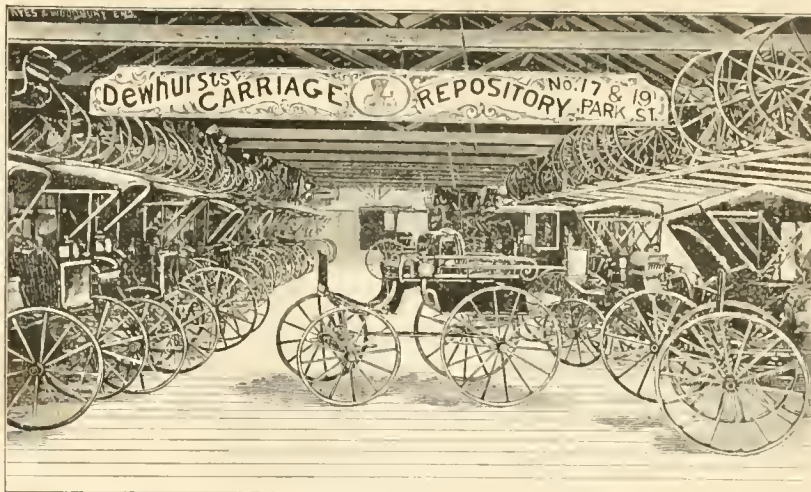 Dewhursts
CARRIAGE REPOSITORY
No. 17 & 19
PARK ST.